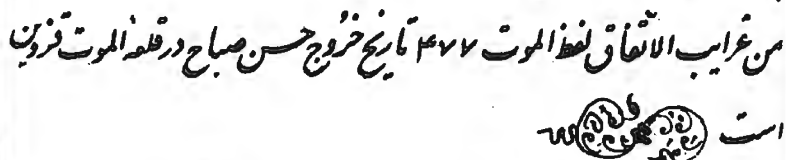 من غرایب الاتّفاق لفظ الموت ۴۷۷ تاریخ خُروج حسن صباح در قلعهٔ الموت قزوین
است